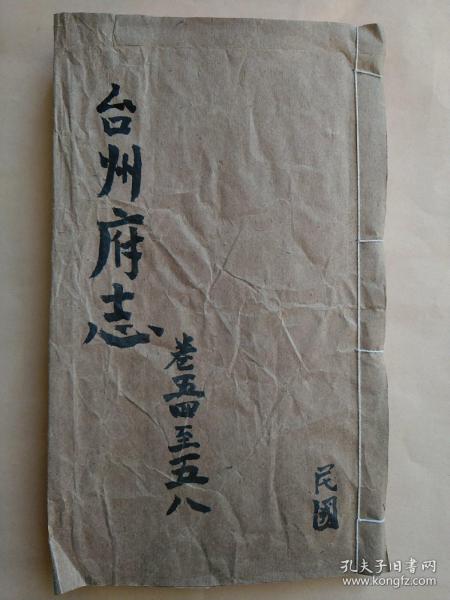 台州府志
卷五四至五八
民國
孔夫子旧书网
www.kongfz.com